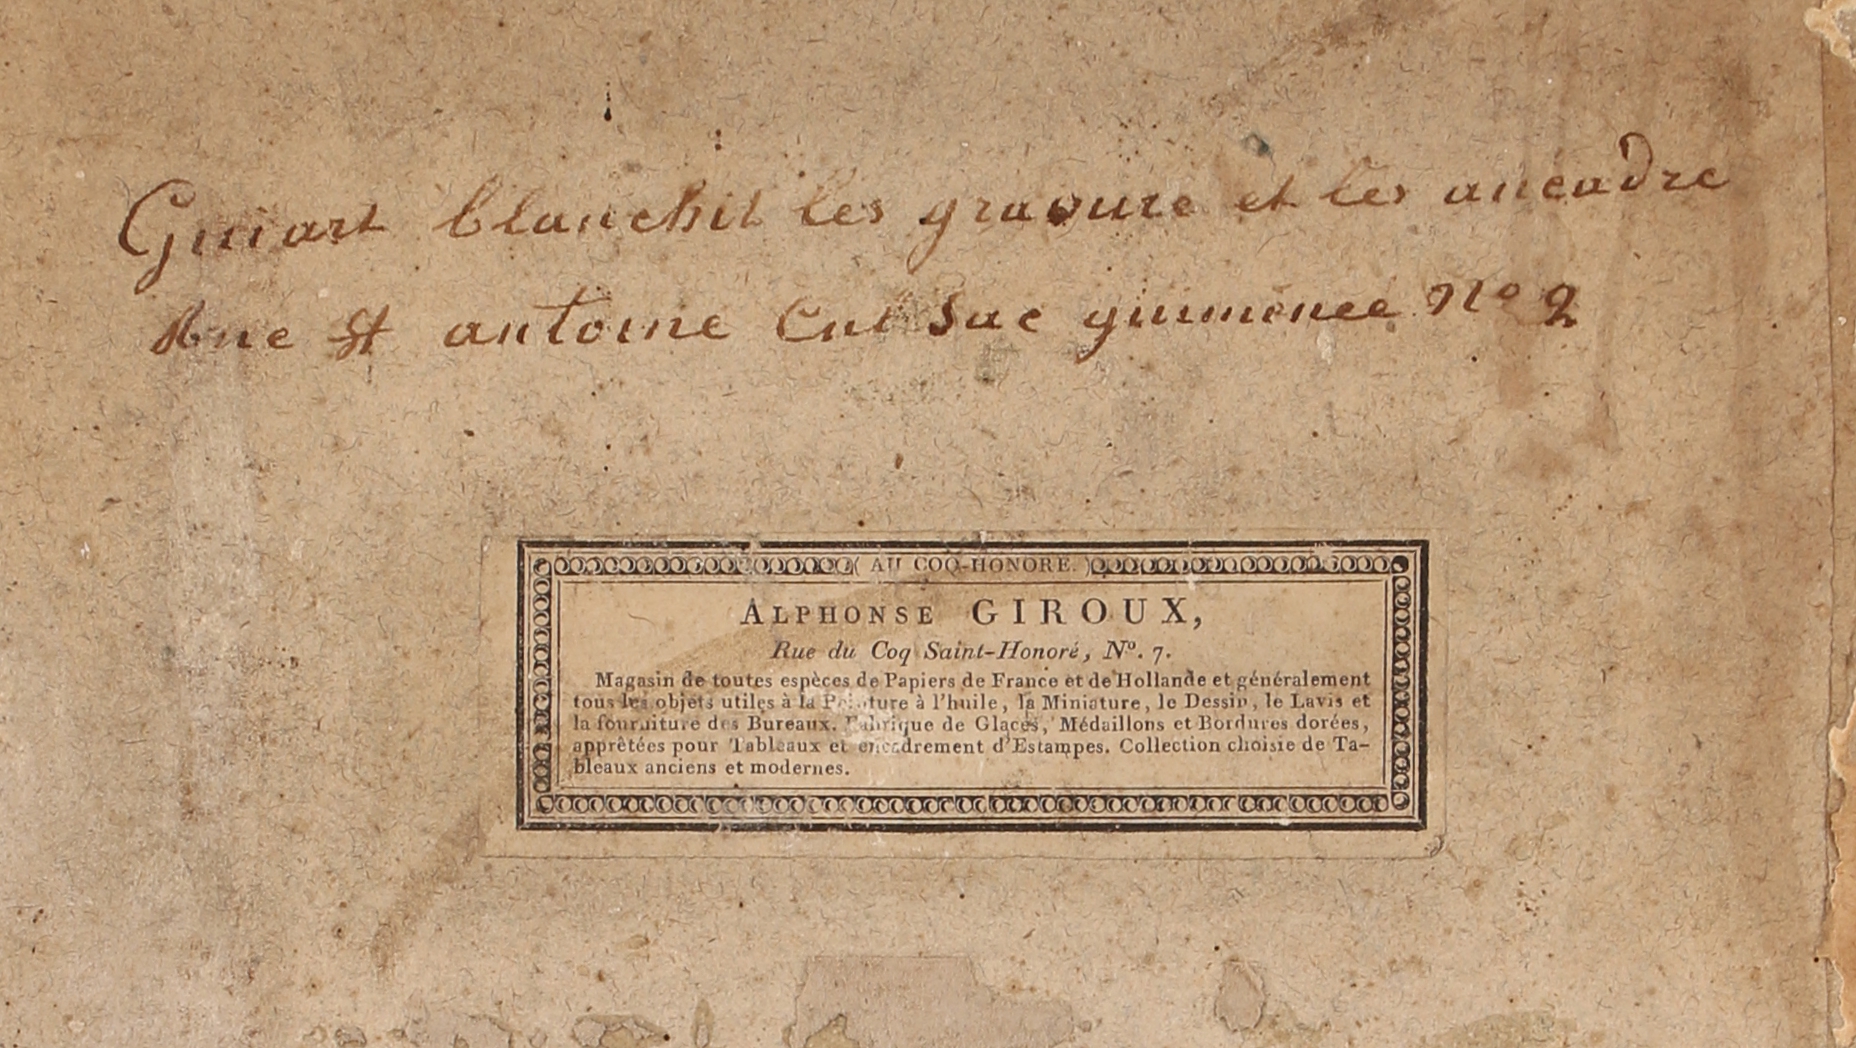 Guiart blanchit les gravure et les ancadre
Rue St antoine Cul Sac guimenee No 2
AU COQ-HONORE.
ALPHONSE GIROUX,
Rue du Coq Saint-Honoré, No. 7.
Magasin de toutes espèces de Papiers de France et de Hollande et généralement
tous les objets utiles à la Peinture à l'huile, la Miniature, le Dessin, le Lavis et
la fourniture des Bureaux. Fabrique de Glaces, Médaillons et Bordures dorées,
apprêtées pour Tableaux et encadrement d'Estampes. Collection choisie de Ta-
bleaux anciens et modernes.